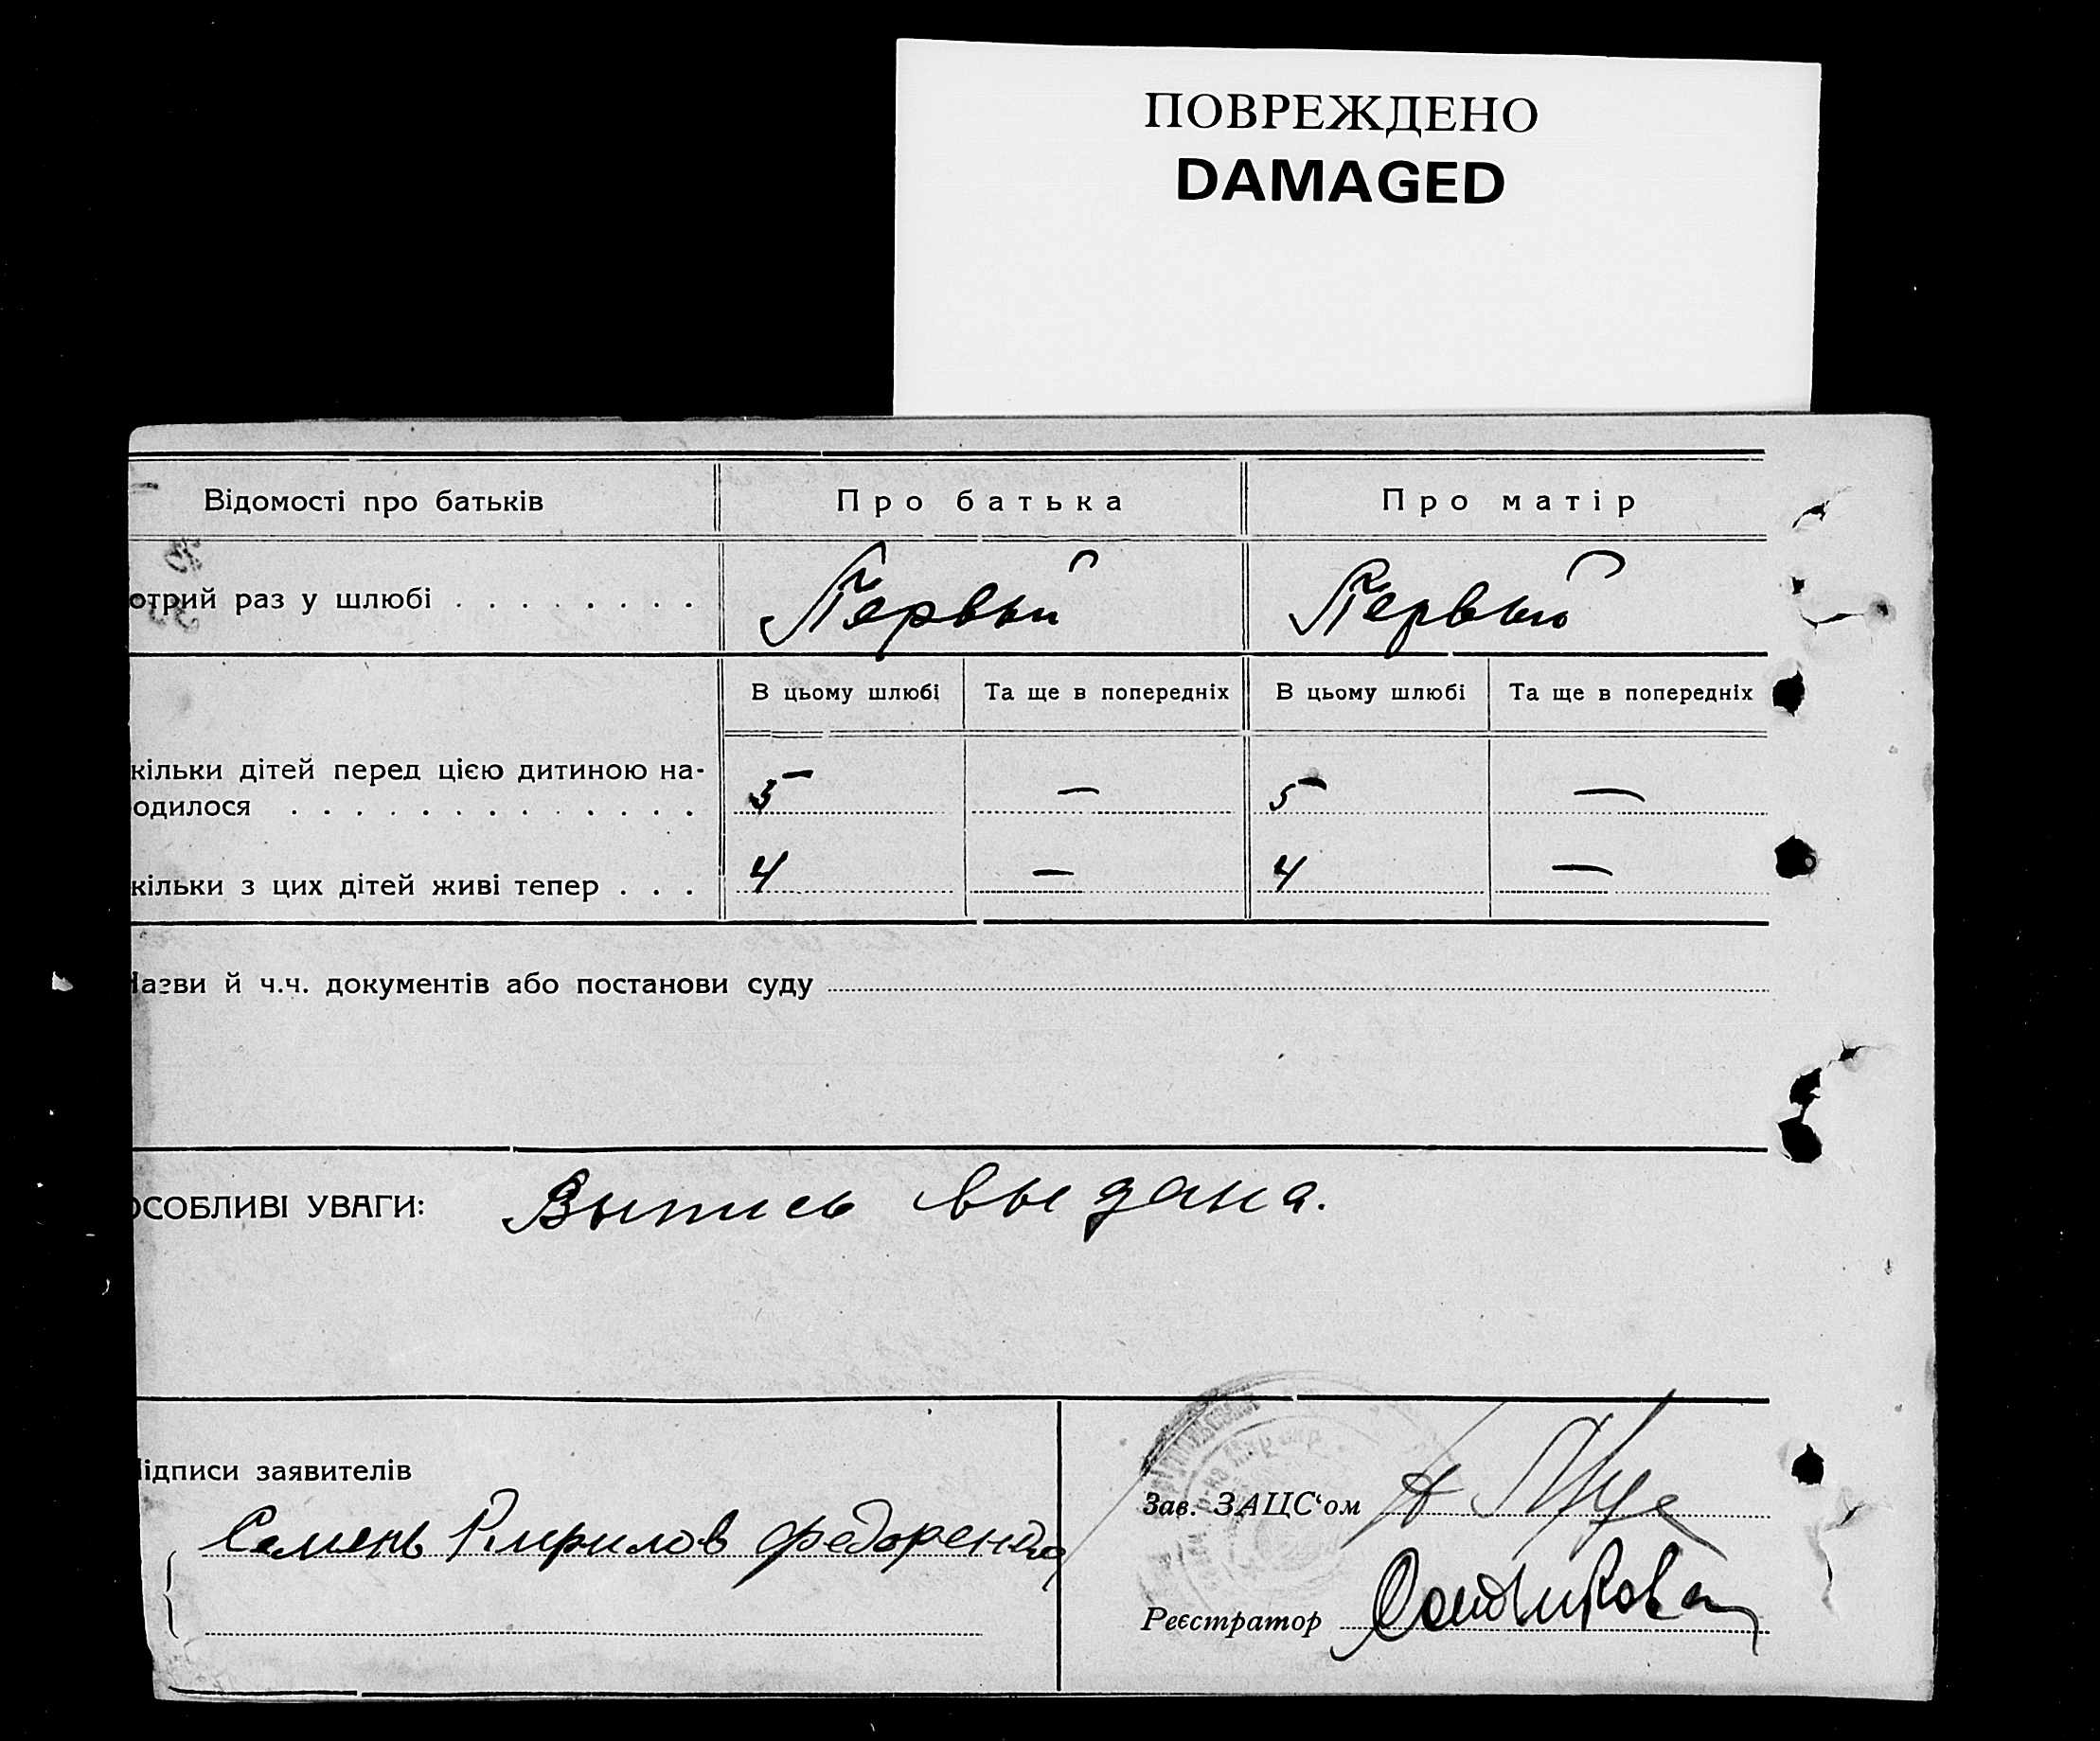 ПОВРЕЖДЕНО
DAMAGED
Відомості про батьків
Про батька
Про матір
отрий раз у шлюбі . . . . . . . .
Первый
Первый
В цьому шлюбі
Та ще в попередніх
В цьому шлюбі
Та ще в попередніх
кільки дітей перед цією дитиною на-
одилося . . . . . . . . . . . . .
5
—
5
—
кільки з цих дітей живі тепер . . .
4
—
4
—
Назви й ч.ч. документів або постанови суду
ОСОБЛИВІ УВАГИ: Выпись выдана.
ідписи заявителів
Семень Кирилов Федоренко
Зав. ЗАЦС‘ом
Реєстратор